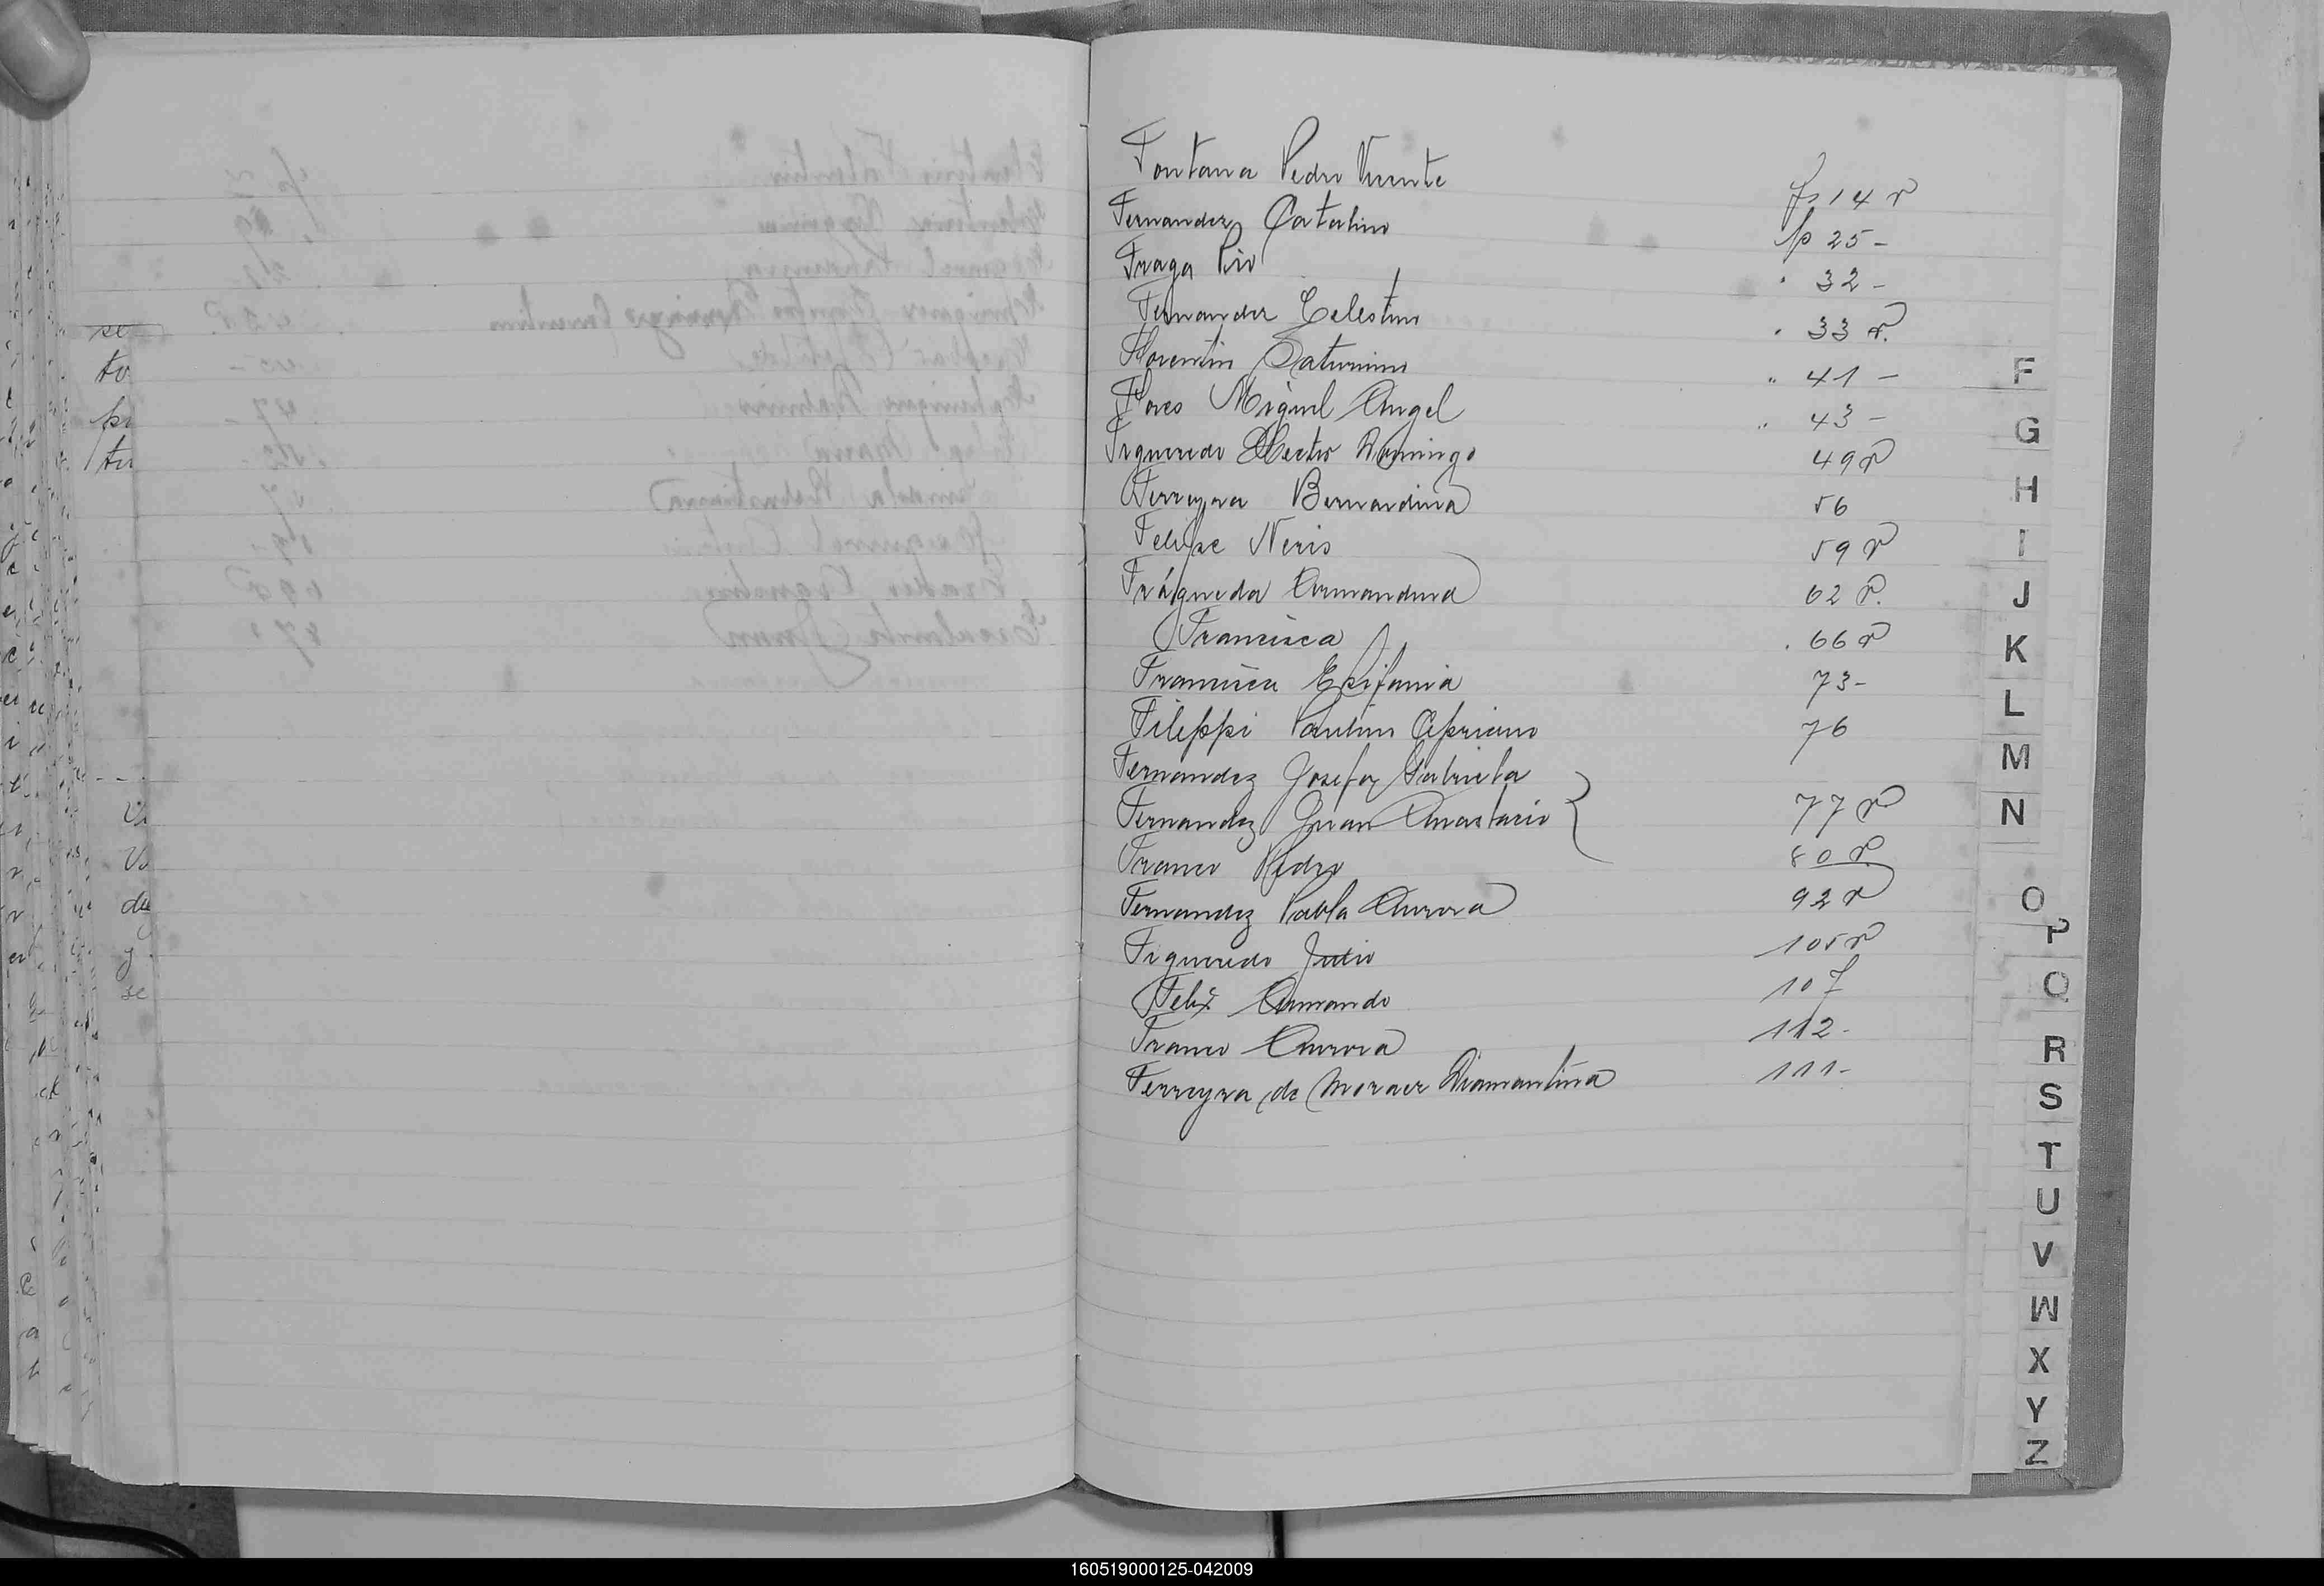 Fontana Pedro Vicente fs 14 v
Fernandez Catalino fo 25 -
Fraga Pio " 32 -
Fernandez Celestino " 33 v.
Florentin Saturnino " 41 -
Flores Miguel Angel " 43 -
Figueredo Hector Domingo 49 v
Ferreyra Bernardina 56
Felipe Neris 59 v
Armandina 62 v.
Francisca . 66 v
Francisca Epifania 73 -
Fileppi Paulino Cipriano 76
Fernandez Josefa
Fernandez Juan Anastacio } 77 v
Franco Pedro 80 v.
Fernandez Pabla Aurora 92 v
Figueredo Julio 105 v
Felix Armando 107
Franco Aurora 112 -
Ferreyra de Moraer Diamantina 111 -
F
G
H
I
J
K
L
M
N
O
P
Q
R
S
T
U
V
W
X
Y
Z
160519000125-042009